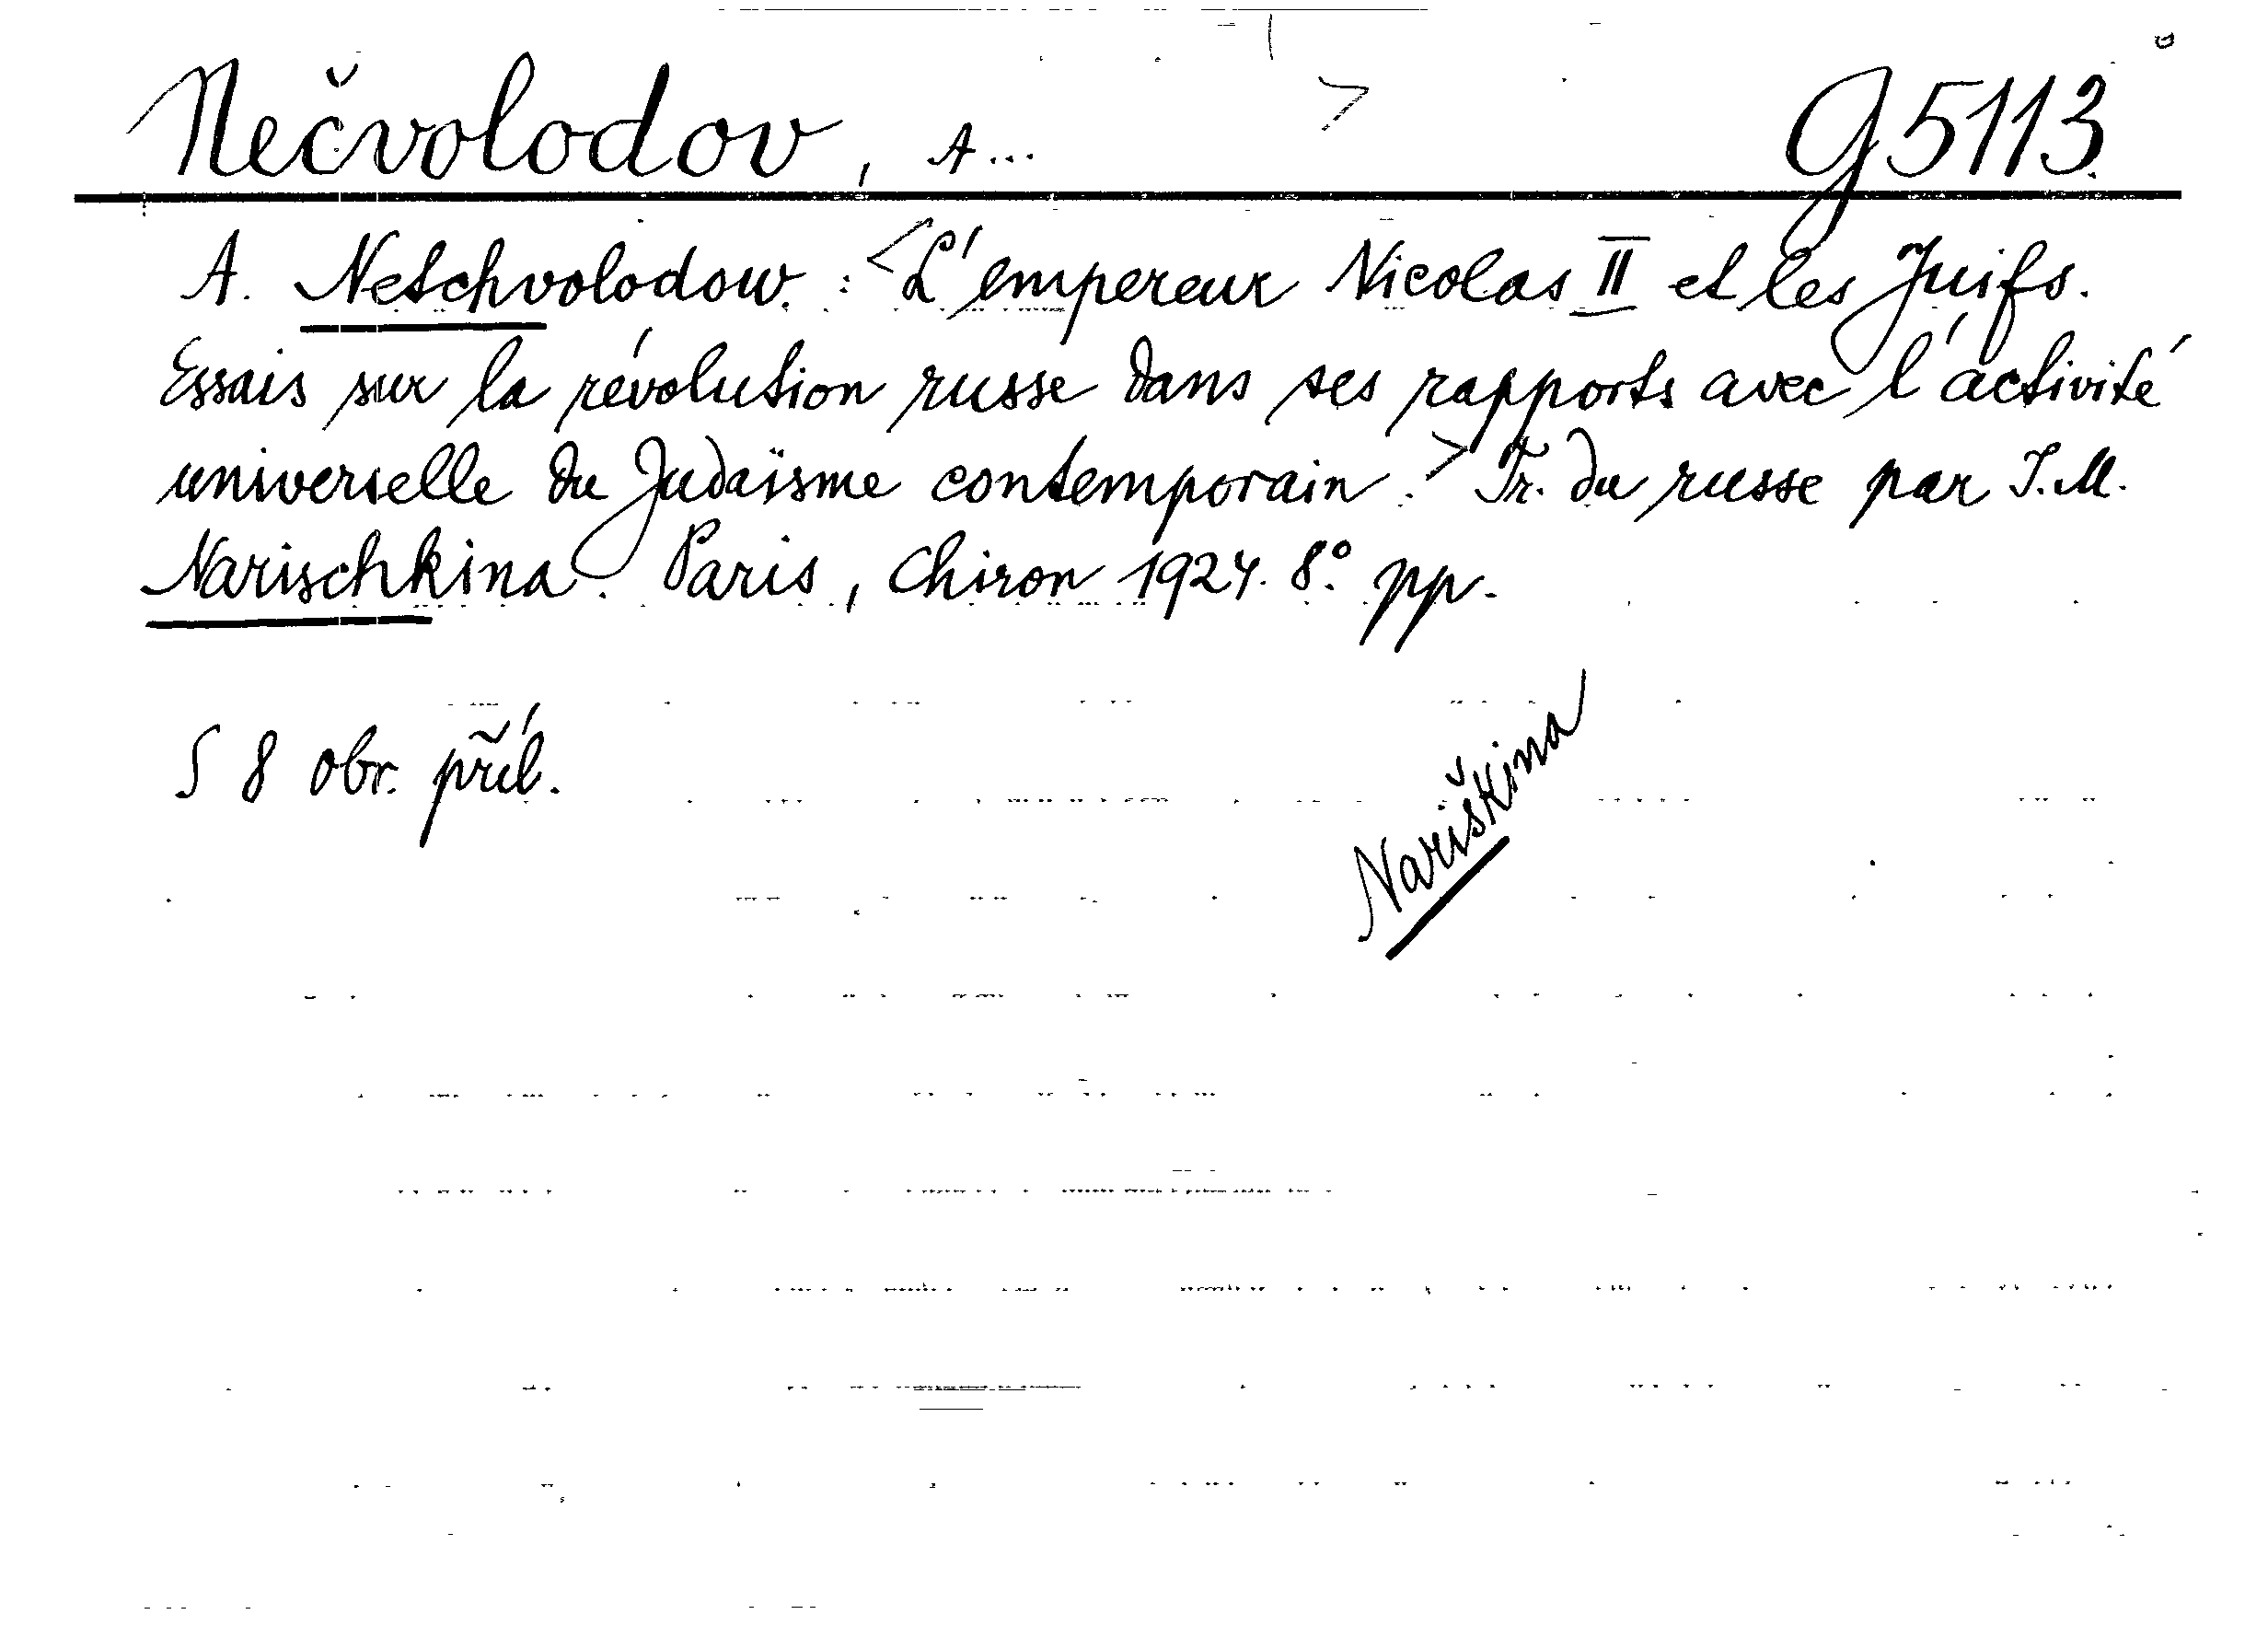 Nečvolodov, A... > g 5113.
A. Netschvolodow. : <L'empereur Nicolas II et les Juifs.
Essais sur la révolution russe dans ses rapports avec l'activité
universelle du Judaïsme contemporain.> Tr. du russe par I. M.
Narischkina. Paris, Chiron 1924. 8° pp.
S 8 obr. příl.
Nariškina